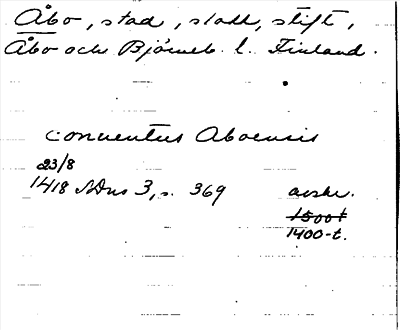 Åbo, stad, slott, stift,
Åbo och Björneb. l. Finland.
conventus Aboensis
23/8
1418 SDns 3, s. 369 avskr.
1500 t
1400-t.